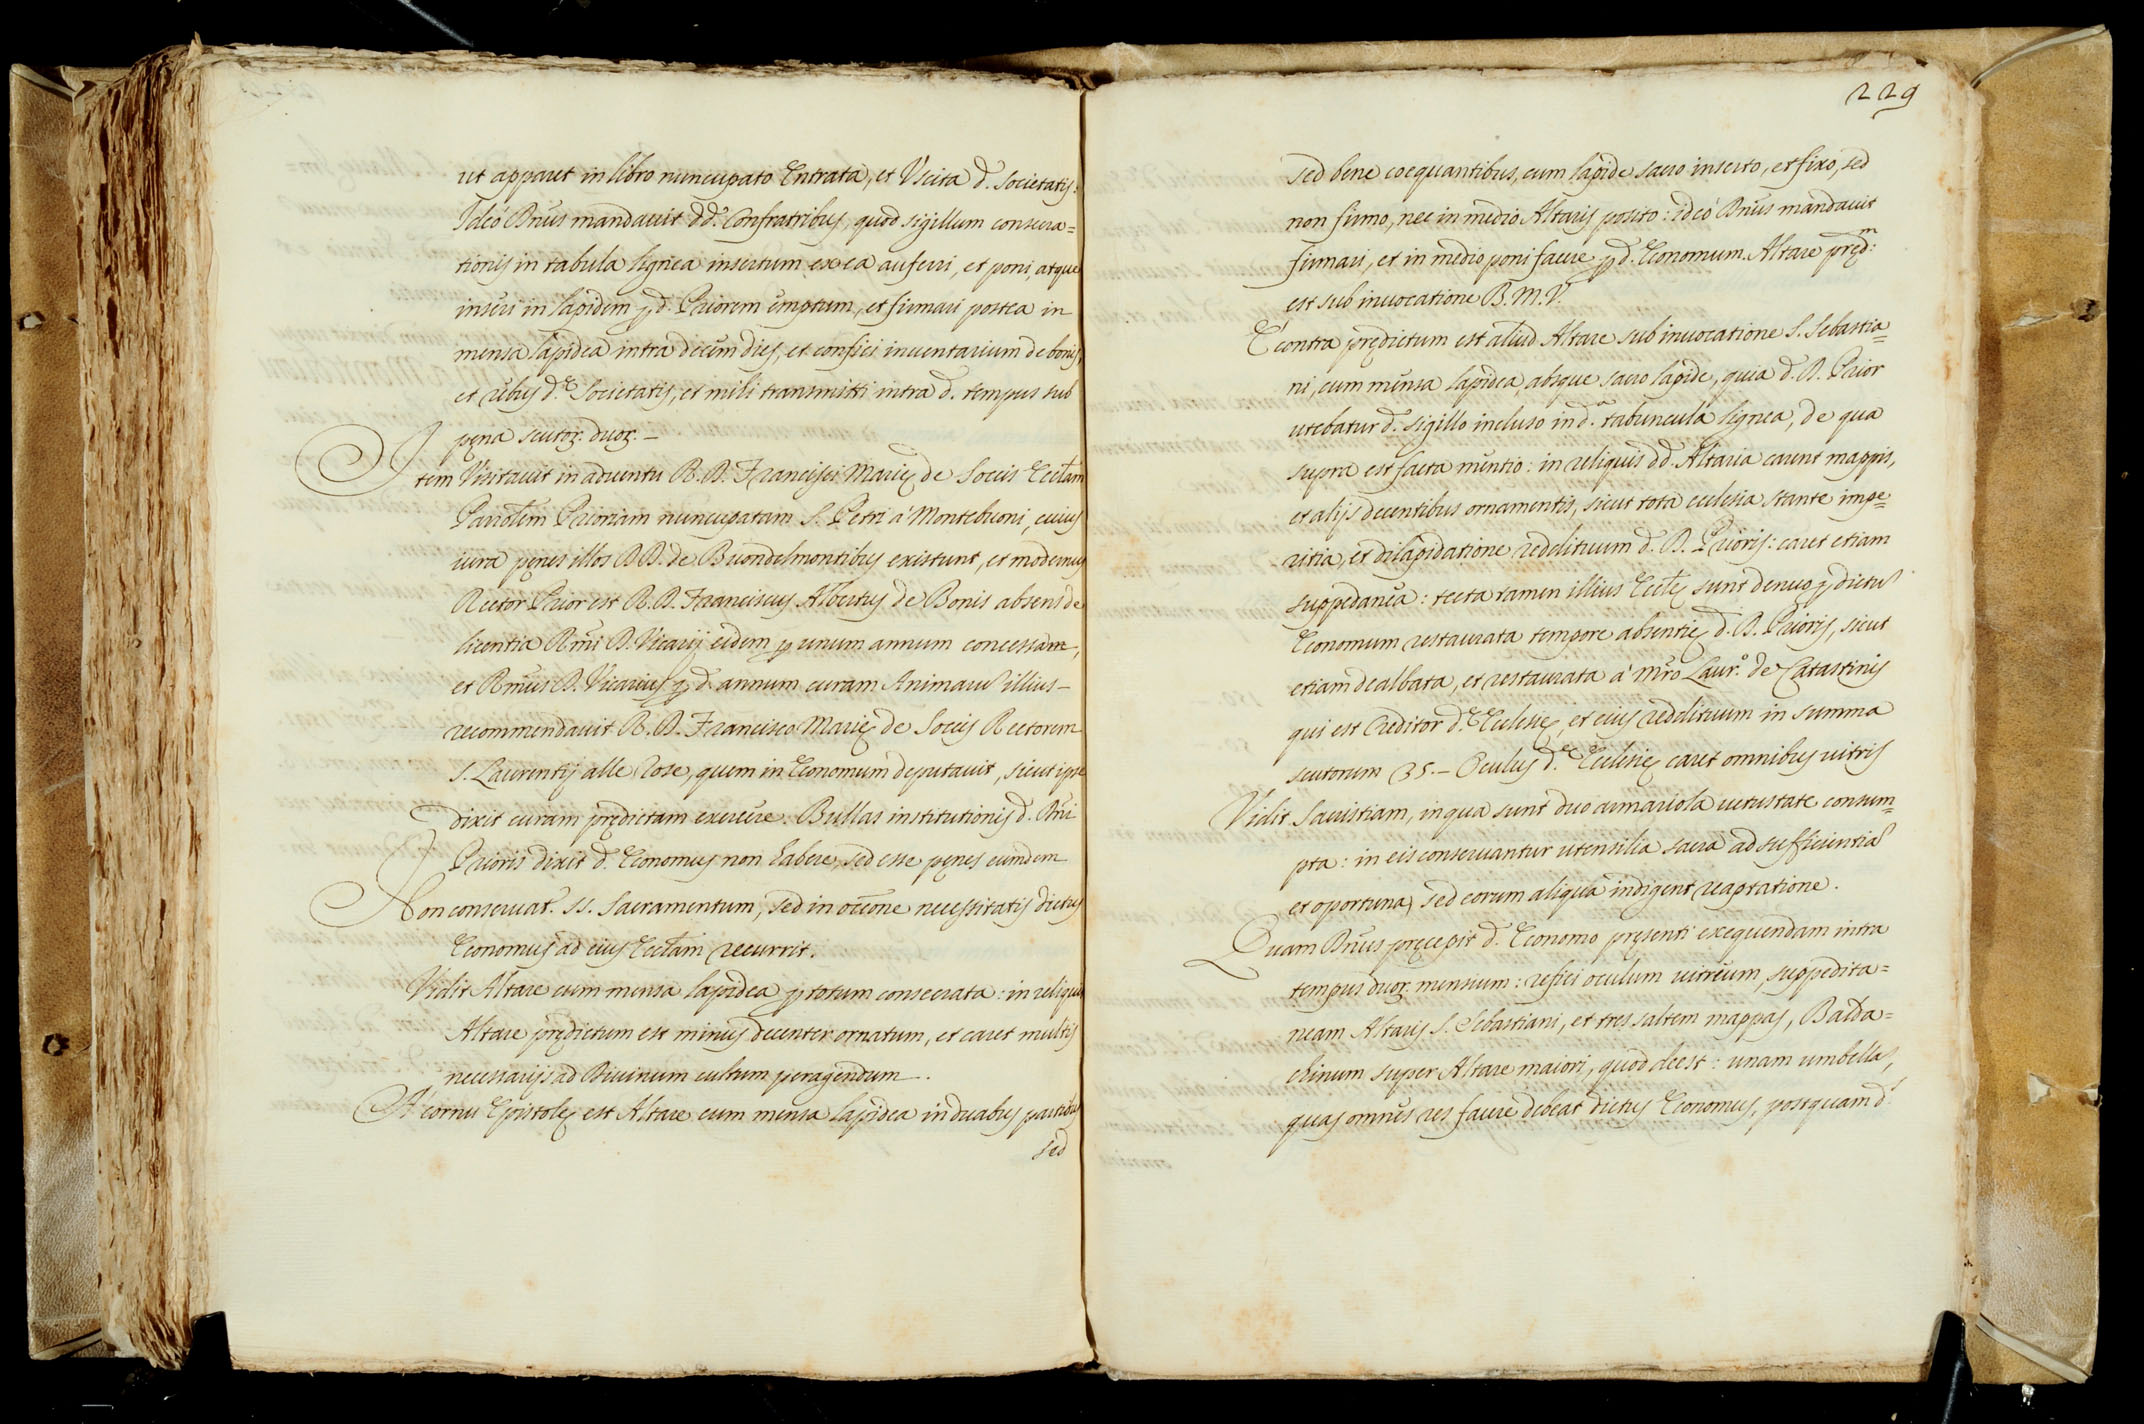 ut apparet in libro nuncupato Entrata, et Vscita d. Societatis:
Ideò Dnus mandauit dd. Confratribus, quod sigillum consecra=
tionis in tabula lignea insertum, ex ea auferri, et poni, atque
inseri in lapidem p d. Priorem emptum, et firmari postea in
mensa lapidea intra decem dies, et confici inuentarium de bonis,
et rebus d.e Societatis, et mihi transmitti intra d. tempus sub
pęna scutor. duor. –
Item Visitauit in aduentu R. D. Francisci Marię de Soccis Eccłam
Parołem Prioriam nuncupatam S. Petri à Montebuoni, cuius
iura pęnes illos DD. de Buondelmontibus existunt, et modernus
Rector Prior est R. D. Franciscus Albertus de Bonis absens de
licentia Rmi D. Vicarij eidem p unum annum concessam,
et Rmus D. Vicarius p d. annum curam Animaru illius –
recommendauit R. D. Francisco Marię de Socijs Rectorem
S. Laurentij alle Rose, quem in Economum deputauit, sicut ipse
dixit curam prędictam exercere. Bullas institutionis d. Rmi
Prioris dixit d. Economus non habere, sed esse pęnes eumdem
Non conseruat. SS. Sacramentum, sed in occone necessitatis dictus
Economus ad eius Eccłam recurrit.
Vidit Altare cum mensa lapidea p totum consecrata: in reliquis
Altare prędictum est minus decenter ornatum, et caret multis
necessarijs ad Diuinum cultum peragendum.
A cornu Epistolę est Altare cum mensa lapidea in duabus partibus
sed
229
sed bene coequantibus, cum lapide sacro inserto, et fixo, sed
non firmo, nec in medio Altaris posito: ideò Dnus mandauit
firmari, et in medio poni facere p d. Economum. Altare pręd.m
est sub inuocatione B. M. V.
E contra prędictum est aliud Altare sub inuocatione S. Sebastia=
ni, cum mensa lapidea, absque sacro lapide, quia d. D. Prior
utebatur d. sigillo incluso in d.a tabuncula lignea, de qua
supra est facta mentio: in reliquis dd. Altaria carent mappis,
et alijs decentibus ornamentis, sicut tota ecclesia stante impe=
ritia, et dilapidatione reddituum d. D. Prioris: caret etiam
suppedanea: tecta tamen illius Eccłę sunt denuo p dictu
Economum restaurata tempore absentię d. D. Prioris, sicut
etiam dealbata, et restaurata à mro Laur.o de Catastinis
qui est Creditor d.e Ecclesię, et eius reddituum in summa
scutorum 35. – Oculus d.e Ecclesię caret omnibus vitris
Vidit Sacristiam, in qua sunt duo armariola uetustate consum=
pta: in eis conseruantur utensilia sacra ad sufficientia
et oportuna, sed eorum aliqua indigent reaptatione.
Quam Dnus pręcepit d. Economo pręsenti exequendam intra
tempus duor. mensium: refici oculum uitreum, suppedita=
neam Altaris S. Sebastiani, et tres saltem mappas, Balda=
chinum super Altare maiori, quod deest: unam umbella,
quas omnes res facere debeat dictus Economus, postquam d.